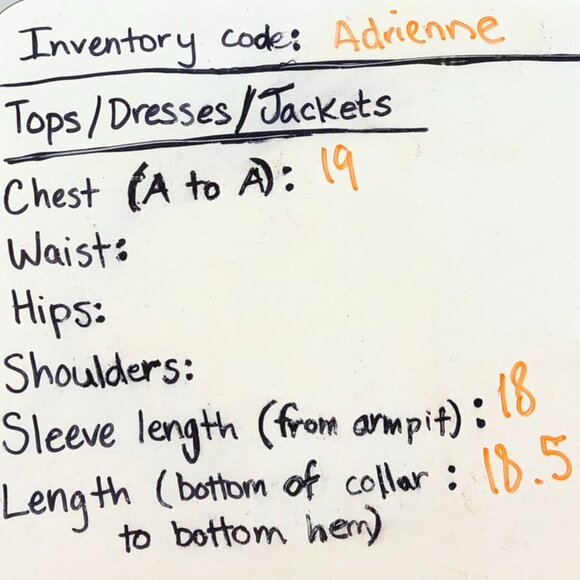 Inventory code: Adrienne
Tops/Dresses/Jackets
Chest (A to A): 19
Waist:
Hips:
Shoulders:
Sleeve length (from armpit): 18
Length (bottom of collar : 18.5
to bottom hem)